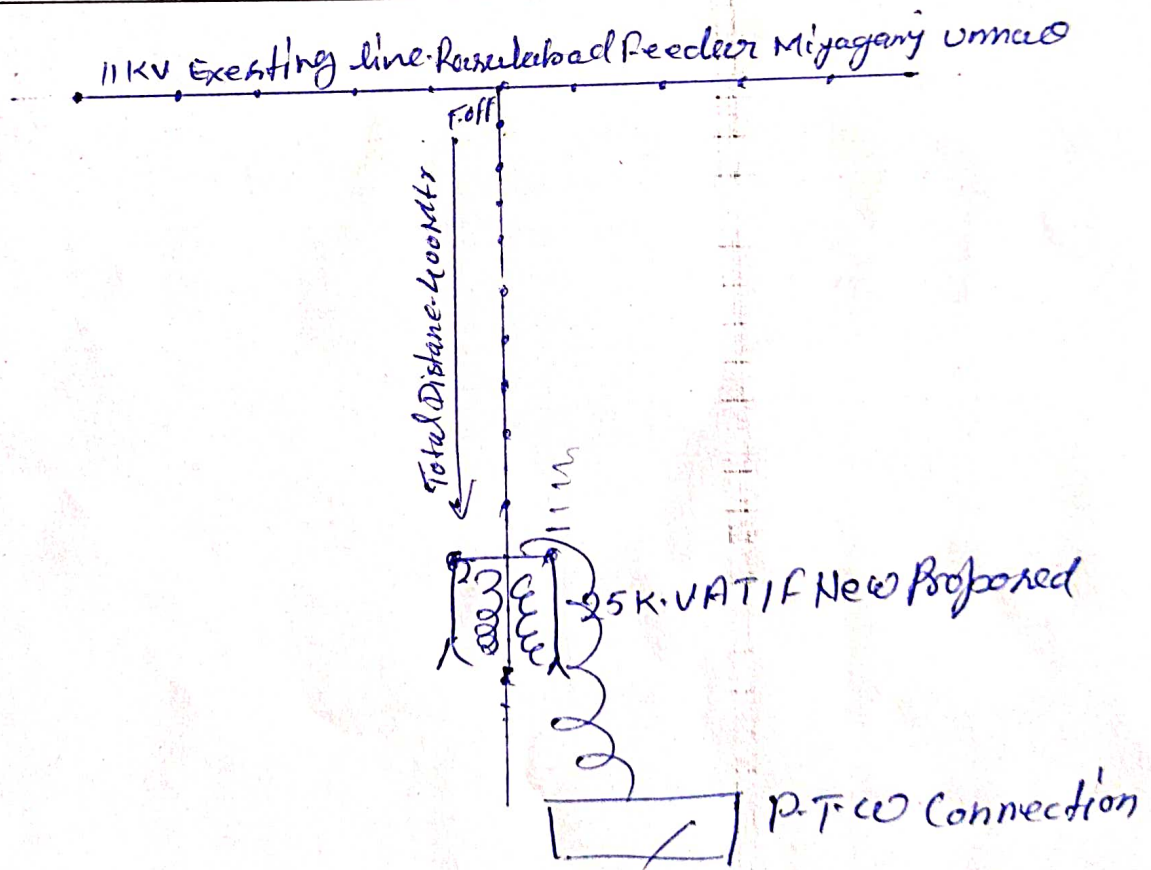 11 KV Exesting line Rasulabad Feeder Miyaganj Unnao
T.off
Total Distane 400 Mtr
25 K.VA T/F New Proposed
P.T.W Connection